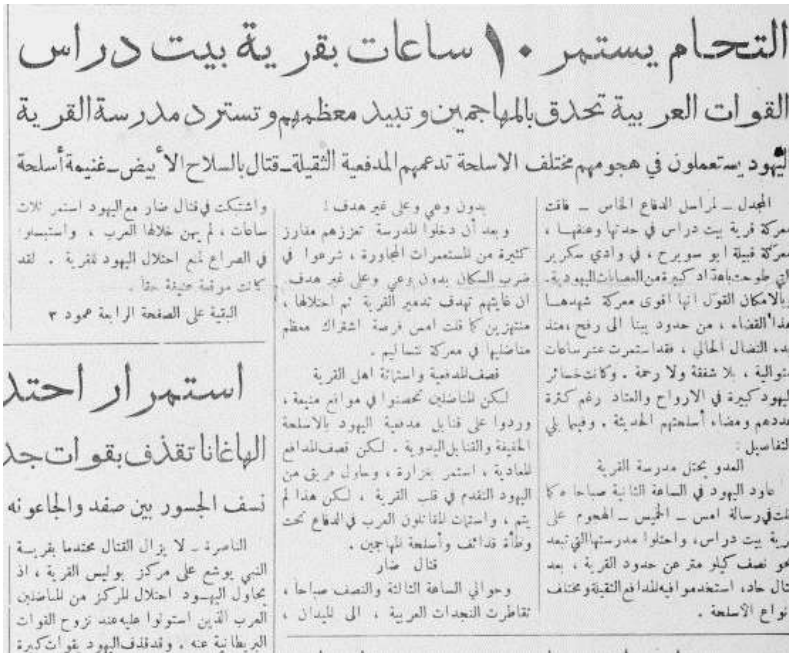 التحام يستمر ١٠ ساعات بقرية بيت دراس
القوات العربية تحدق بالمهاجمين وتبيد معظمهم وتسترد مدرسة القرية
اليهود يستعملون في هجومهم مختلف الاسلحة تدعمهم المدفعية الثقيلة ـ قتال بالسلاح الأبيض ـ غنيمة أسلحة
المجدل ـ لمراسل الدفاع الخاص ـ فاقت
معركة قرية بيت دراس في حدتها وعنفها ،
معركة قبيلة ابو سويرح ، في وادي سكرير
التي طوحت باعداد كبيرة من العصابات اليهودية.
وبالامكان القول انها اقوى معركة شهدهـا
هذا القضاء ، من حدود يبنا الى رفح ،منذ
بدء النضال الحالي ، فقد استمرت عشر ساعات
متوالية ، بلا شفقة ولا رحمة . وكانت خسائر
اليهود كبيرة في الارواح والعتاد رغم كثرة
عددهم ومضاء أسلحتهم الحديثة . وفيما يلي
التفاصيل :
العدو يحتل مدرسة القرية
عاود اليهود في الساعة الثانية صباحا ، كما
قلت في رسالة امس ـ الخميس ـ الهجوم على
قرية بيت دراس، واحتلوا مدرستها التي تبعد
نحو نصف كيلو متر عن حدود القرية ، بعد
قتال حاد، استخدموا فيه المدافع الثقيلة ومختلف
انواع الاسلحة .
بدون وعي وعلى غير هدف !
وبعد أن دخلوا المدرسة تعززهم مفارز
كثيرة من المستعمرات المجاورة ، شرعوا في
ضرب السكان بدون وعي وعلى غير هدف.
ان غايتهم تهدف تدمير القرية ثم احتلالها ،
منتهزين كما قلت امس فرصة اشتراك معظم
مناضليها في معركة نتساليم .
قصف المدفعية واستماتة اهل القرية
لكن المناضلين تحصنوا في مواقع منيعة ،
وردوا على قنابل مدفعية اليهود بالاسلحة
الخفيفة والقنابل اليدوية . لكن قصف المدافع
المعادية ، استمر بغزارة ، وحاول فريق من
اليهود التقدم في قلب القرية ، لكن هذا لم
يتم ، واستمات المقاتلون العرب في الدفاع تحت
وطأة قذائف وأسلحة المهاجمين .
قتال ضار
وحوالي الساعة الثالثة والنصف صباحا ،
تقاطرت النجدات العربية ، الى الميدان ،
واشتبكت في قتال ضار مع اليهود استمر ثلاث
ساعات ، لم يهن خلالها العرب ، واستبسلوا
في الصراع لمنع احتلال اليهود للقرية . لقد
كانت موقعة عنيفة حقا .
البقية على الصفحة الرابعة عمود ٣
استمرار احتد
الهاغانا تقذف بقوات جد
نسف الجسور بين صفد والجاعونه
الناصرة ـ لا يزال القتال محتدما بقريـة
النبي يوشع على مركز بوليس القرية ، اذ
يحاول اليهـود احتلال المركز من المناضلين
العرب الذين استولوا عليه عند نزوح القوات
البريطانية عنه . وقد قذف اليهود بقوات كبيرة